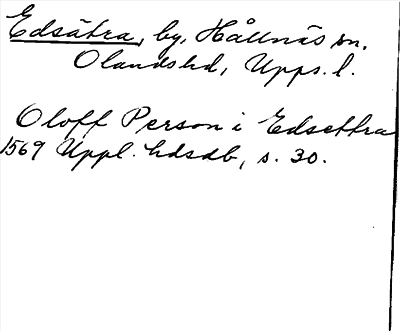 Edsätra, by, Hållnäs sn.
Olandshd, Upps. l.
Oloff Person i Edsettra
1569 Uppl. hdsdb, s. 30.